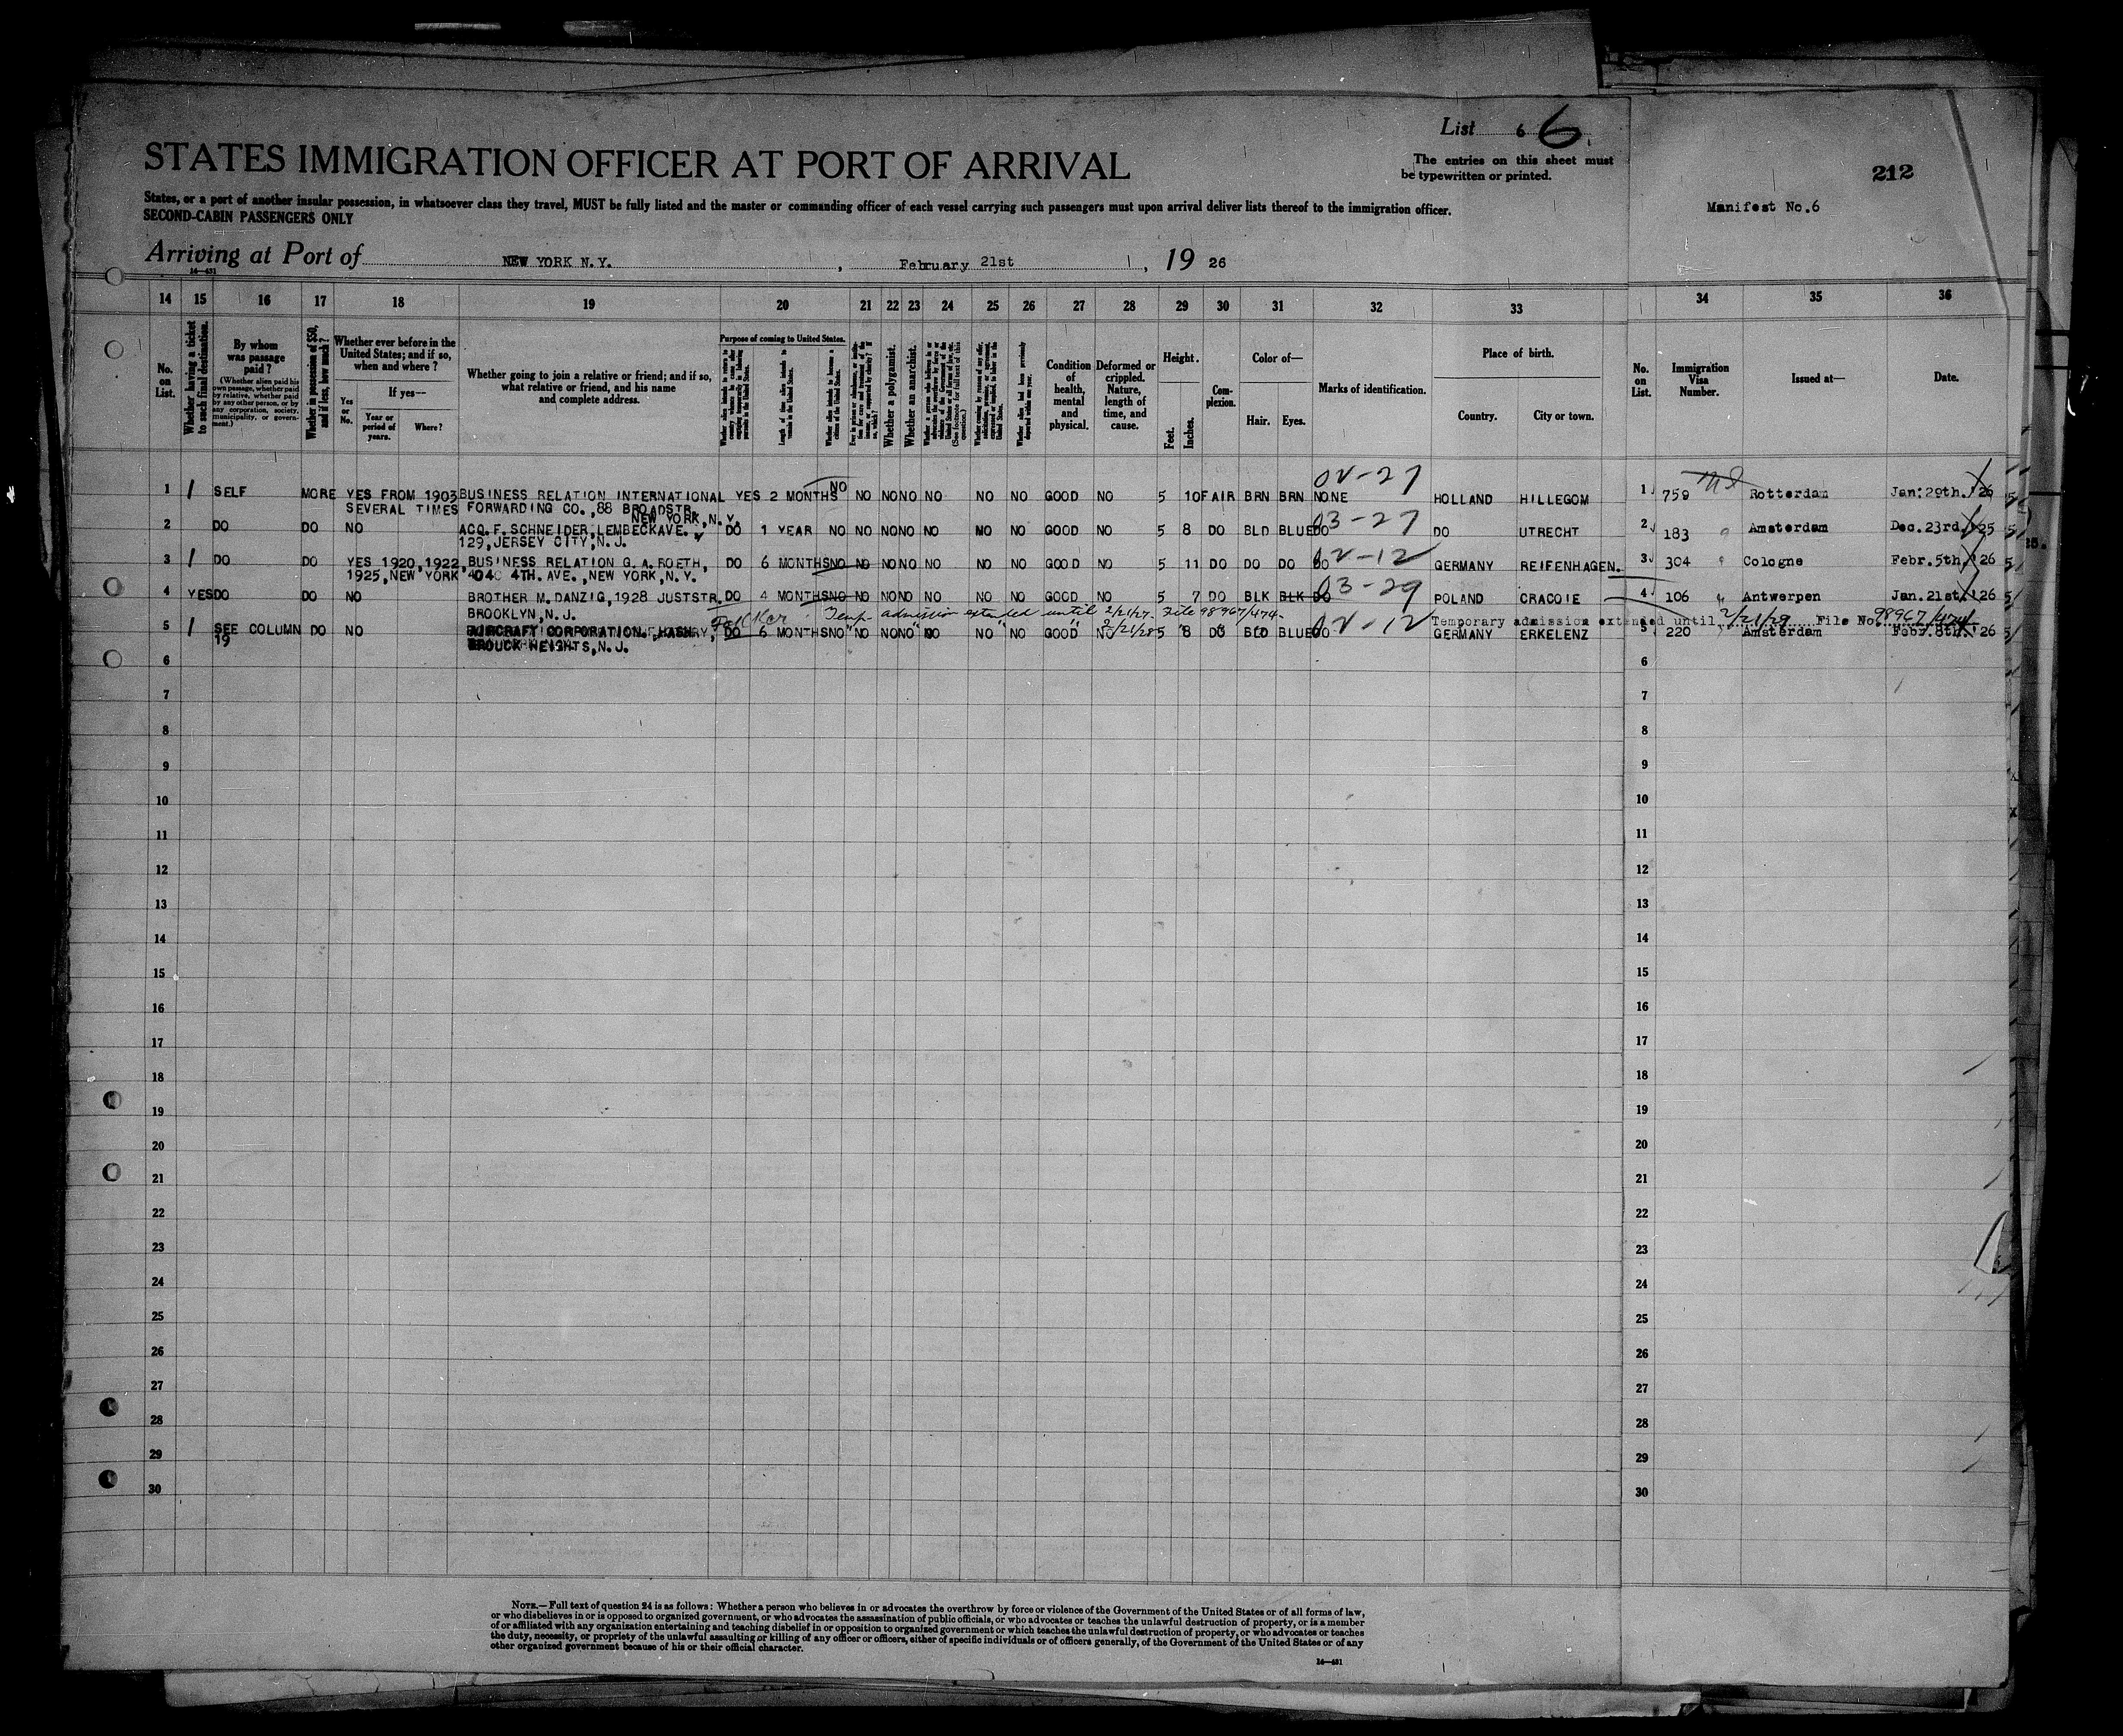 List 6 6
STATES IMMIGRATION OFFICER AT PORT OF ARRIVAL
The entries on this sheet must
be typewritten or printed.
212
Manifest No.6
States, or a port of another insular possession, in whatsoever class they travel, MUST be fully listed and the master or commanding officer of each vessel carrying such passengers must upon arrival deliver lists thereof to the immigration officer.
SECOND-CABIN PASSENGERS ONLY
Arriving at Port of NEW YORK N.Y. , February 21st , 19 26
14 15 16 17 18 19 20 21 22 23 24 25 26 27 28 29 30 31 32 33 34 35 36
No. on List.
Whether having a ticket to such final destination.
By whom was passage paid?
(Whether alien paid his own passage, whether paid by relative, whether paid by any other person, or by any corporation, society, municipality, or government.)
Whether in possession of $50, and if less, how much?
Whether ever before in the United States; and if so, when and where?
If yes—
Yes or No.
Year or period of years.
Where?
Whether going to join a relative or friend; and if so, what relative or friend, and his name and complete address.
Purpose of coming to United States.
Length of time alien intends to remain in the United States.
Whether alien intends to become a citizen of the United States.
Whether a polygamist.
Whether an anarchist.
Condition of health, mental and physical.
Deformed or crippled. Nature, length of time, and cause.
Height.
Feet. Inches.
Complexion.
Color of—
Hair. Eyes.
Marks of identification.
Place of birth.
Country. City or town.
No. on List.
Immigration Visa Number.
Issued at—
Date.
02-27
1 SELF MORE YES FROM 1903 BUSINESS RELATION INTERNATIONAL YES 2 MONTHS NO NO NO NO NO NO NO GOOD NO 5 10 FAIR BRN BRN NONE HOLLAND HILLEGOM 1 759 Rotterdam Jan. 29th. 26
SEVERAL TIMES FORWARDING CO.,88 BROADSTR.
NEW YORK,N.Y.
03-27
2 DO DO NO ACQ.F.SCHNEIDER,LEMBECKAVE. DO 1 YEAR NO NO NO NO NO NO NO GOOD NO 5 8 DO BLD BLUE DO DO UTRECHT 2 183 Amsterdam Dec.23rd. 25
129,JERSEY CITY,N.J.
02-12
3 DO DO YES 1920,1922, BUSINESS RELATION G.A.ROETH, DO 6 MONTHS NO NO NO NO NO NO NO GOOD NO 5 11 DO DO DO DO GERMANY REIFENHAGEN. 3 304 Cologne Febr.5th. 26
1925,NEW YORK 4040 4TH.AVE.,NEW YORK,N.Y.
03-29
4 YES DO DO NO BROTHER M.DANZIG,1928 JUSTSTR. DO 4 MONTHS NO NO NO NO NO NO NO GOOD NO 5 7 DO BLK BLK DO POLAND CRACOIE 4 106 Antwerpen Jan.21st. 26
BROOKLYN,N.J.
Temp. admission extended until 2/21/27. File 98967/474.
" " " 2/21/28
Temporary admission extended until 2/21/29 File No. 98967/474
02-12
5 SEE COLUMN DO NO AIRCRAFT CORPORATION, HASBR DO 6 MONTHS NO NO NO NO NO NO NO GOOD NO 5 8 DO BLD BLUE DO GERMANY ERKELENZ 5 220 Amsterdam Febr.8th. 26
19 BROUCK HEIGHTS,N.J.
6 6
7 7
8 8
9 9
10 10
11 11
12 12
13 13
14 14
15 15
16 16
17 17
18 18
19 19
20 20
21 21
22 22
23 23
24 24
25 25
26 26
27 27
28 28
29 29
30 30
NOTE.—Full text of question 24 is as follows: Whether a person who believes in or advocates the overthrow by force or violence of the Government of the United States or of all forms of law,
or who disbelieves in or is opposed to organized government, or who advocates the assassination of public officials, or who advocates or teaches the unlawful destruction of property, or is a member
of or affiliated with any organization entertaining and teaching disbelief in or opposition to organized government or which teaches the unlawful destruction of property, or who advocates or teaches
the duty, necessity, or propriety of the unlawful assaulting or killing of any officer or officers, either of specific individuals or of officers generally, of the Government of the United States or of any
other organized government because of his or their official character.
14—431